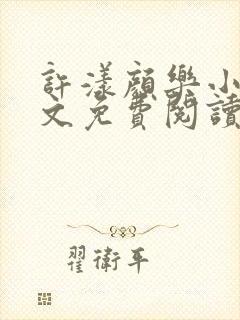 許漾顏樂小
文免費閱讀
翟衛平